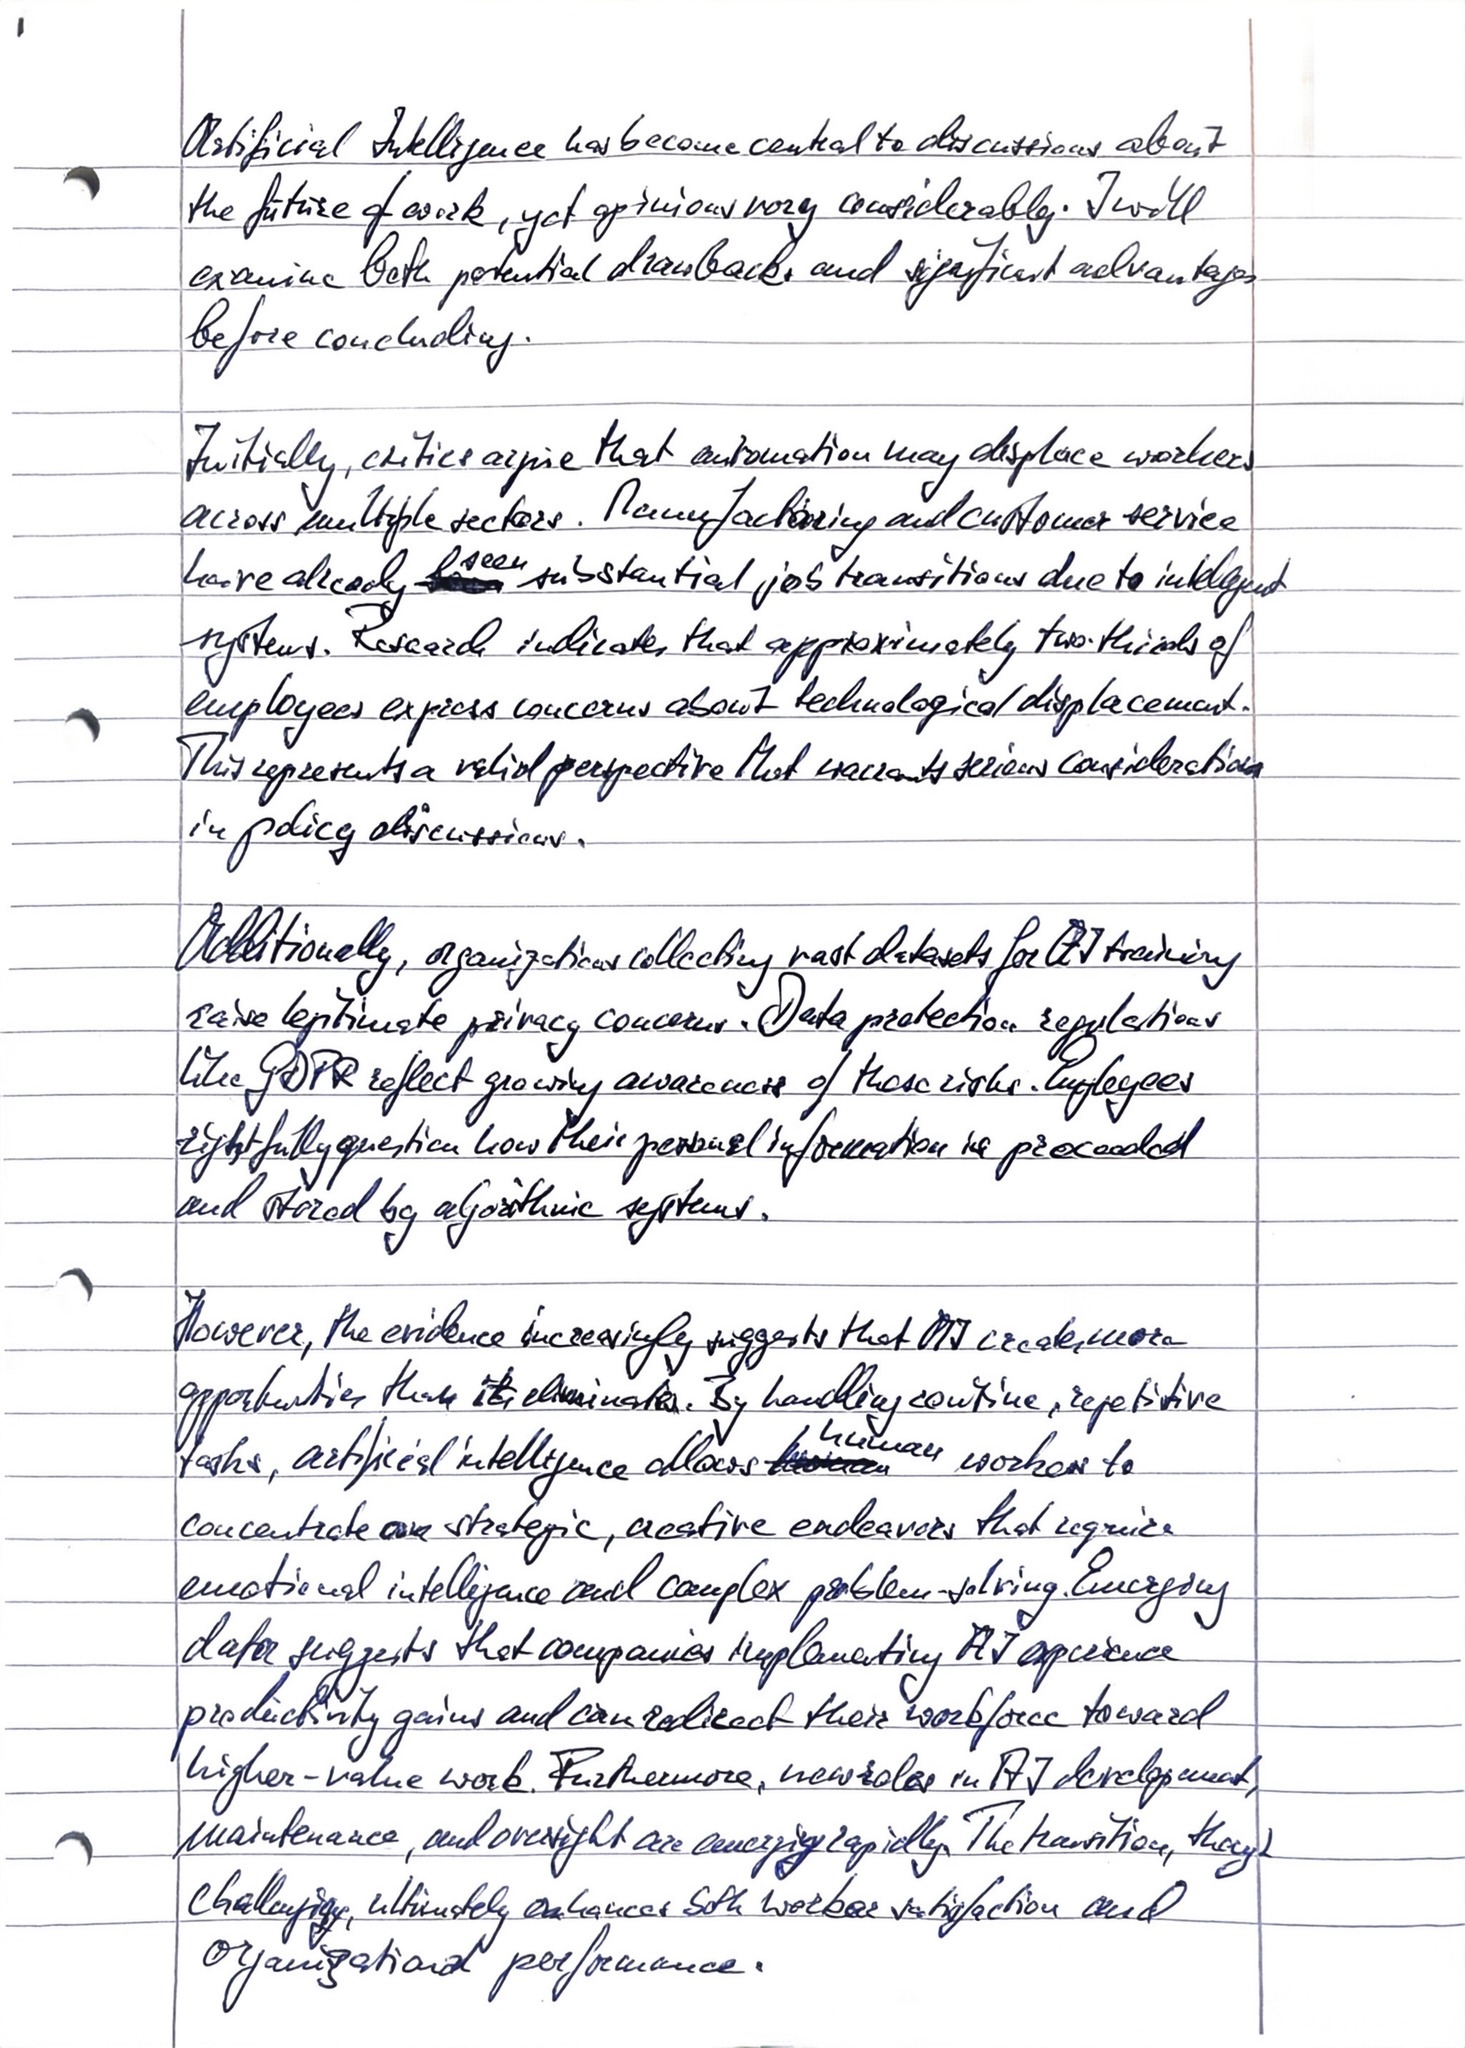 Artificial Intelligence has become central to discussions about
the future of work, yet opinions vary considerably. I will
examine both potential drawbacks and significant advantages
before concluding.
Initially, critics argue that automation may displace workers
across multiple sectors. Manufacturing and customer service
have already seen substantial job transitions due to intelligent
systems. Research indicates that approximately two-thirds of
employees express concerns about technological displacement.
This represents a valid perspective that warrants serious consideration
in policy discussions.
Additionally, organizations collecting vast datasets for AI training
raise legitimate privacy concerns. Data protection regulations
like GDPR reflect growing awareness of these risks. Employees
rightfully question how their personal information is proceeded
and stored by algorithmic systems.
However, the evidence increasingly suggests that AI creates more
opportunities than it eliminates. By handling routine, repetitive
tasks, artificial intelligence allows human workers to
concentrate on strategic, creative endeavors that require
emotional intelligence and complex problem-solving. Emerging
data suggests that companies implementing AI experience
productivity gains and can redirect their workforce toward
higher-value work. Furthermore, new roles in AI development,
maintenance, and oversight are emerging rapidly. The transition, though
challenging, ultimately enhances both worker satisfaction and
organizational performance.